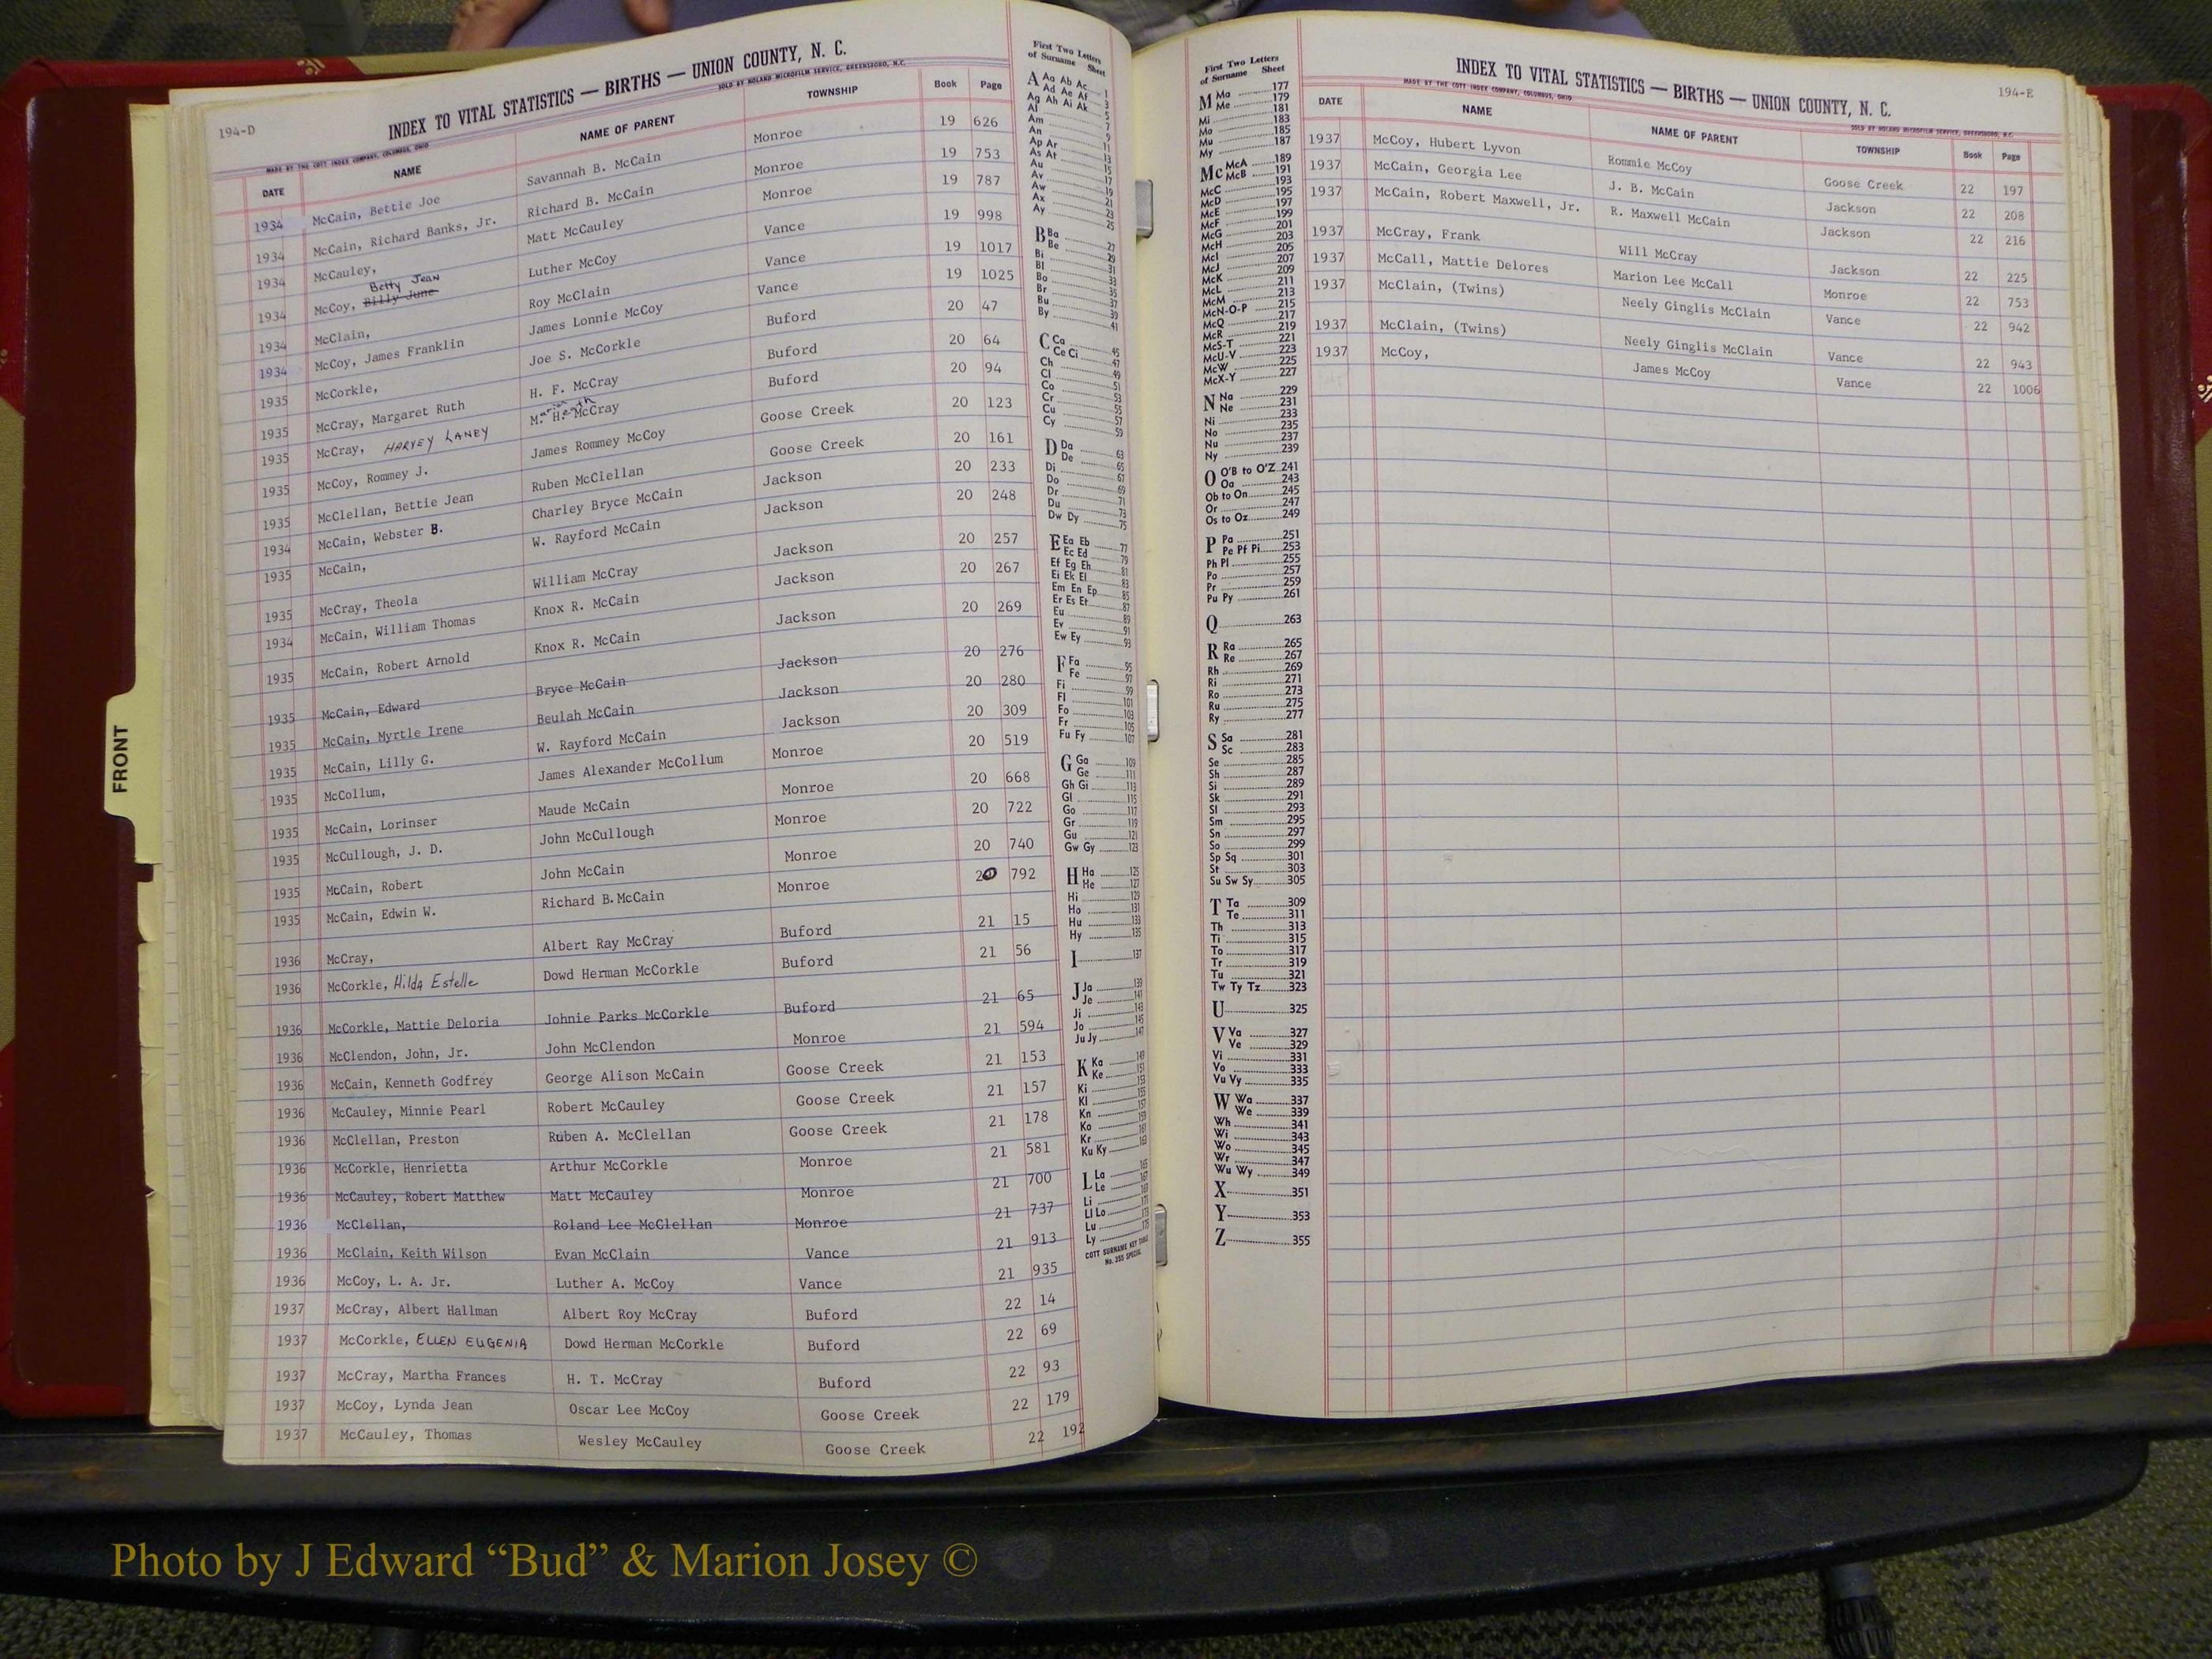 194-D
INDEX TO VITAL STATISTICS — BIRTHS — UNION COUNTY, N. C.
MADE BY THE COTT INDEX COMPANY, COLUMBUS, OHIO SOLD BY NOLAND MICROFILM SERVICE, GREENSBORO, N.C.
DATE NAME NAME OF PARENT TOWNSHIP Book Page
1934 McCain, Bettie Joe Savannah B. McCain Monroe 19 626
1934 McCain, Richard Banks, Jr. Richard B. McCain Monroe 19 753
1934 McCauley, Matt McCauley Monroe 19 787
Betty Jean
1934 McCoy, Billy June Luther McCoy Vance 19 998
1934 McClain, Roy McClain Vance 19 1017
1934 McCoy, James Franklin James Lonnie McCoy Vance 19 1025
1935 McCorkle, Joe S. McCorkle Buford 20 47
1935 McCray, Margaret Ruth H. F. McCray Buford 20 64
1935 McCray, HARVEY LANEY M. H. McCray Buford 20 94
1935 McCoy, Rommey J. James Rommey McCoy Goose Creek 20 123
1935 McClellan, Bettie Jean Ruben McClellan Goose Creek 20 161
1934 McCain, Webster B. Charley Bryce McCain Jackson 20 233
1935 McCain, W. Rayford McCain Jackson 20 248
1935 McCray, Theola William McCray Jackson 20 257
1934 McCain, William Thomas Knox R. McCain Jackson 20 267
1935 McCain, Robert Arnold Knox R. McCain Jackson 20 269
1935 McCain, Edward Bryce McCain Jackson 20 276
1935 McCain, Myrtle Irene Beulah McCain Jackson 20 280
1935 McCain, Lilly G. W. Rayford McCain Jackson 20 309
1935 McCollum, James Alexander McCollum Monroe 20 519
1935 McCain, Lorinser Maude McCain Monroe 20 668
1935 McCullough, J. D. John McCullough Monroe 20 722
1935 McCain, Robert John McCain Monroe 20 740
1935 McCain, Edwin W. Richard B. McCain Monroe 20 792
1936 McCray, Albert Ray McCray Buford 21 15
1936 McCorkle, Hilda Estelle Dowd Herman McCorkle Buford 21 56
1936 McCorkle, Mattie Deloria Johnie Parks McCorkle Buford 21 65
1936 McClendon, John, Jr. John McClendon Monroe 21 594
1936 McCain, Kenneth Godfrey George Alison McCain Goose Creek 21 153
1936 McCauley, Minnie Pearl Robert McCauley Goose Creek 21 157
1936 McClellan, Preston Ruben A. McClellan Goose Creek 21 178
1936 McCorkle, Henrietta Arthur McCorkle Monroe 21 581
1936 McCauley, Robert Matthew Matt McCauley Monroe 21 700
1936 McClellan, Roland Lee McClellan Monroe 21 737
1936 McClain, Keith Wilson Evan McClain Vance 21 913
1936 McCoy, L. A. Jr. Luther A. McCoy Vance 21 935
1937 McCray, Albert Hallman Albert Roy McCray Buford 22 14
1937 McCorkle, ELLEN EUGENIA Dowd Herman McCorkle Buford 22 69
1937 McCray, Martha Frances H. T. McCray Buford 22 93
1937 McCoy, Lynda Jean Oscar Lee McCoy Goose Creek 22 179
1937 McCauley, Thomas Wesley McCauley Goose Creek 22 192
First Two Letters
of Surname Sheet
A Aa Ab Ac 1
Ad Ae Af 3
Ag Ah Ai Ak 5
Al 7
Am 9
An 11
Ap Ar 13
As At 15
Au 17
Av 19
Aw 21
Ax 23
Ay 25
B Ba 27
Be 29
Bi 31
Bl 33
Bo 35
Br 37
Bu 39
By 41
C Ca 45
Ce Ci 47
Ch 49
Cl 51
Co 53
Cr 55
Cu 57
Cy 59
D Da 63
De 65
Di 67
Do 69
Dr 71
Du 73
Dw Dy 75
E Ea Eb 77
Ec Ed 79
Ef Eg Eh 81
Ei Ek El 83
Em En Ep 85
Er Es Et 87
Eu 89
Ev 91
Ew Ey 93
F Fa 95
Fe 97
Fi 99
Fl 101
Fo 103
Fr 105
Fu Fy 107
G Ga 109
Ge 111
Gh Gi 113
Gl 115
Go 117
Gr 119
Gu 121
Gw Gy 123
H Ha 125
He 127
Hi 129
Ho 131
Hu 133
Hy 135
I 137
J Ja 139
Je 141
Ji 143
Jo 145
Ju Jy 147
K Ka 149
Ke 151
Ki 153
Kl 155
Kn 157
Ko 159
Kr 161
Ku Ky 163
L La 165
Le 167
Li 169
Ll Lo 171
Lu 173
Ly 175
COTT SURNAME KEY TABLE
No. 355 SPECIAL
First Two Letters
of Surname Sheet
M Ma 177
Me 179
Mi 181
Mo 183
Mu 185
My 187
Mc McA 189
McB 191
McC 193
McD 195
McE 197
McF 199
McG 201
McH 203
McI 205
McJ 207
McK 209
McL 211
McM 213
McN-O-P 215
McQ 217
McR 219
McS-T 221
McU-V 223
McW 225
McX-Y 227
N Na 229
Ne 231
Ni 233
No 235
Nu 237
Ny 239
O O'B to O'Z 241
Oa 243
Ob to On 245
Or 247
Os to Oz 249
P Pa 251
Pe Pf Pi 253
Ph Pl 255
Po 257
Pr 259
Pu Py 261
Q 263
R Ra 265
Re 267
Rh 269
Ri 271
Ro 273
Ru 275
Ry 277
S Sa 281
Sc 283
Se 285
Sh 287
Si 289
Sk 291
Sl 293
Sm 295
Sn 297
So 299
Sp Sq 301
St 303
Su Sw Sy 305
T Ta 309
Te 311
Th 313
Ti 315
To 317
Tr 319
Tu 321
Tw Ty Tz 323
U 325
V Va 327
Ve 329
Vi 331
Vo 333
Vu Vy 335
W Wa 337
We 339
Wh 341
Wi 343
Wo 345
Wr 347
Wu Wy 349
X 351
Y 353
Z 355
INDEX TO VITAL STATISTICS — BIRTHS — UNION COUNTY, N. C. 194-E
MADE BY THE COTT INDEX COMPANY, COLUMBUS, OHIO SOLD BY NOLAND MICROFILM SERVICE, GREENSBORO, N.C.
DATE NAME NAME OF PARENT TOWNSHIP Book Page
1937 McCoy, Hubert Lyvon Rommie McCoy Goose Creek 22 197
1937 McCain, Georgia Lee J. B. McCain Jackson 22 208
1937 McCain, Robert Maxwell, Jr. R. Maxwell McCain Jackson 22 216
1937 McCray, Frank Will McCray Jackson 22 225
1937 McCall, Mattie Delores Marion Lee McCall Monroe 22 753
1937 McClain, (Twins) Neely Ginglis McClain Vance 22 942
1937 McClain, (Twins) Neely Ginglis McClain Vance 22 943
1937 McCoy, James McCoy Vance 22 1006
FRONT
Photo by J Edward “Bud” & Marion Josey ©